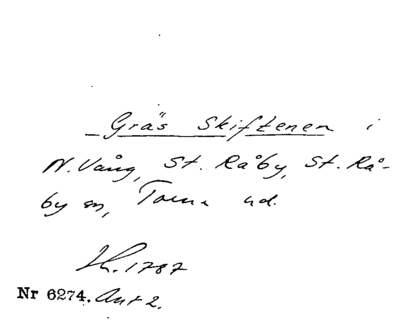 Gräs Skiftenen i
N. Vång, St. Råby, St. Rå-
by sn, Torna hd.
1787
Nr 6274. Ant 2.